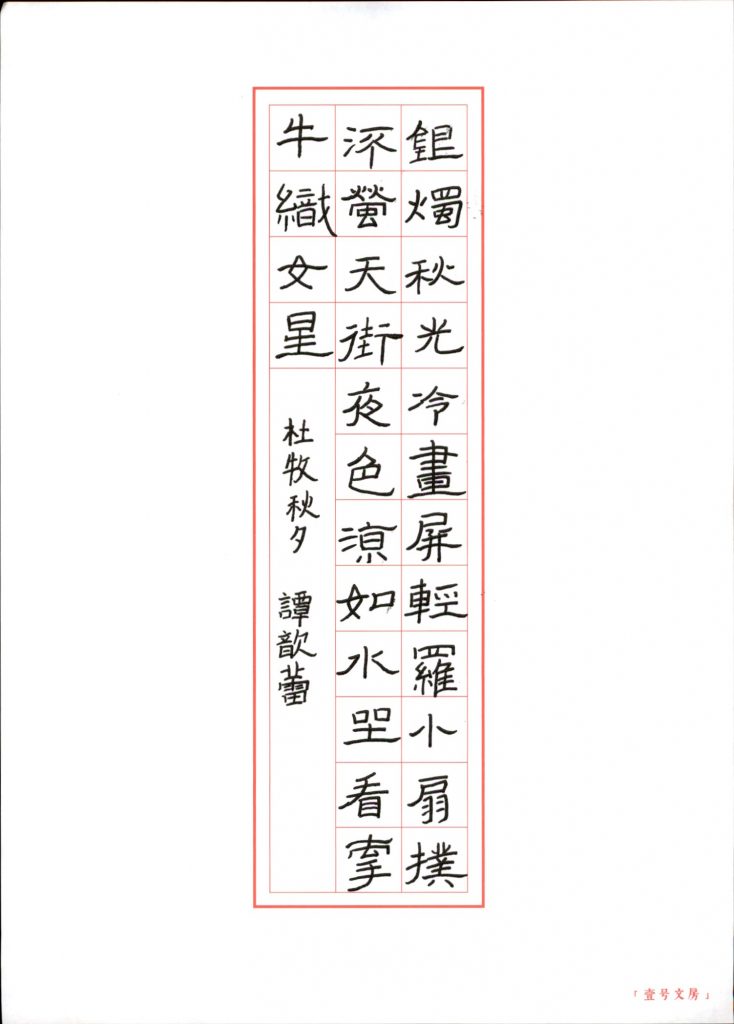 銀燭秋光冷畫屏輕羅小扇撲
流螢天街夜色涼如水坐看牽
牛織女星
杜牧秋夕 譚歆蕾
「壹号文房」